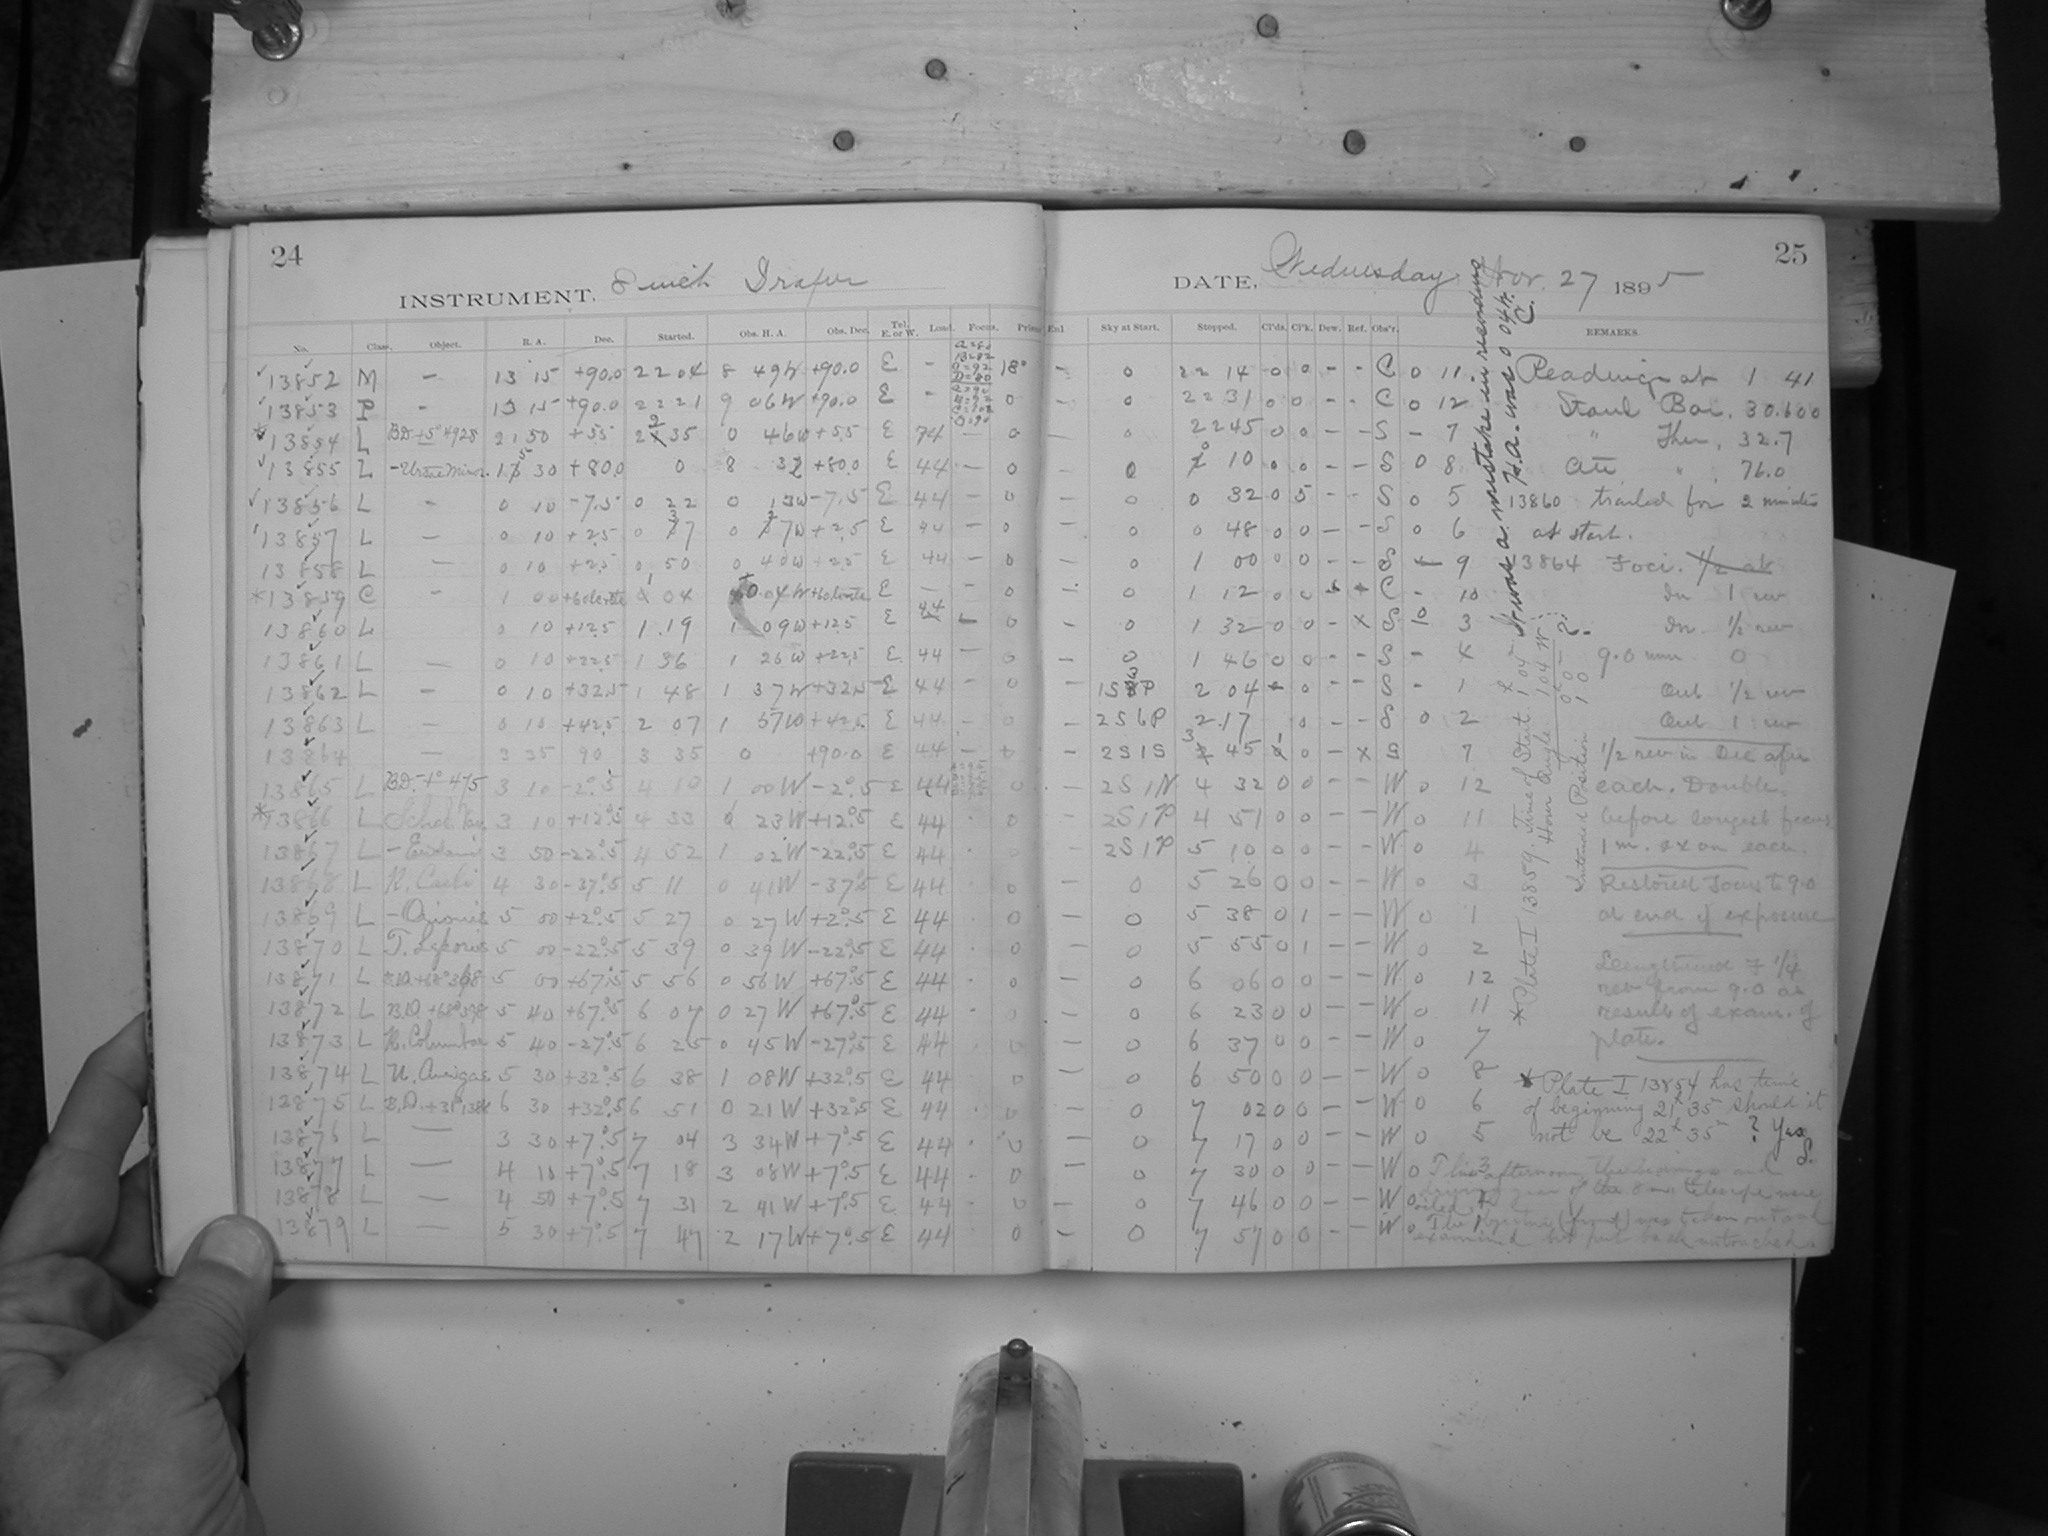 24
INSTRUMENT. 8 inch Draper
No. Class. Object. R. A. Dec. Started. Obs. H. A. Obs. Dec. Tel. E. or W. Load. Focus. Prism
13852 M - 13 15 +90.0 22 04 8 49W +90.0 E - 18°
13853 P - 13 15 +90.0 22 21 9 06W +90.0 E - 0
13854 L BD+5°4928 21 50 +55 22 35 0 46W +5.5 E 74 - 0
13855 L -Ursae Minor. 15 30 +80.0 0 8 32 +80.0 E 44 - 0
13856 L - 0 10 -7.5 0 22 0 13W -7.5 E 44 - 0
13857 L - 0 10 +2.5 0 37 0 27W +2.5 E 44 - 0
13858 L - 0 10 +2.5 0 50 0 40W +2.5 E 44 - 0
13859 C - 1 00 1 04 04W E - - 0
13860 L 0 10 +12.5 1 19 1 09W +12.5 E 44 - 0
13861 L - 0 10 +22.5 1 36 1 26W +22.5 E 44 - 0
13862 L - 0 10 +32.5 1 48 1 37W +32.5 E 44 - 0
13863 L - 0 10 +42.5 2 07 1 57W +42.5 E 44 - 0
13864 - 3 35 90 3 35 0 +90.0 E 44 -
13865 L BD-1°475 3 10 -2°.5 4 10 1 00W -2°.5 E 44 0
13866 L 3 10 +12°.5 4 33 23W +12°.5 E 44 0
13867 L 3 50 -22°.5 4 52 1 02W -22°.5 E 44
13868 L R. Caeli 4 30 -37°.5 5 11 0 41W -37°.5 E 44 0
13869 L -Orionis 5 00 +2°.5 5 27 0 27W +2°.5 E 44 0
13870 L T. Leporis 5 00 -22°.5 5 39 0 39W -22°.5 E 44 0
13871 L 5 00 +67°.5 5 56 0 56W +67°.5 E 44 0
13872 L B.D. +68°398 5 40 +67°.5 6 07 0 27W +67°.5 E 44 0
13873 L R. Columbae 5 40 -27°.5 6 25 0 45W -27°.5 E 44 0
13874 L U. Aurigae 5 30 +32°.5 6 38 1 08W +32°.5 E 44 0
12875 L B.D. 6 30 +32°.5 6 51 0 21W +32°.5 E 44 0
13876 L - 3 30 +7°.5 7 04 3 34W +7°.5 E 44 0
13877 L - 4 10 +7°.5 7 18 3 08W +7°.5 E 44 0
13878 L - 4 50 +7°.5 7 31 2 41W +7°.5 E 44 - 0
13879 L - 5 30 +7°.5 7 47 2 17W +7°.5 E 44 0
25
DATE, Wednesday Nov. 27 1895
Enl Sky at Start. Stopped. Cl'ds. Cl'k. Dew. Ref. Obs'r. REMARKS.
0 22 14 0 0 - - C 0 11 Readings at 1 41
0 22 31 0 0 - - C 0 12 Stand Bar. 30.600
- 0 22 45 0 0 - - S - 7 " Ther. 32.7
- 0 0 10 0 0 - - S 0 8 Att " 76.0
- 0 0 32 0 5 - - S 0 5 13860 trailed for 2 minutes
- 0 0 48 0 0 - - S 0 6 at start.
- 0 1 00 0 0 - - S - 9 13864 Foci. 1/2 at
- 0 1 12 0 0 C - 10 In 1 rev
- 0 1 32 0 0 - x S 0 3 In 1/2 rev
- 0 1 46 0 0 - - S - 4 9.0 mm 0
- 2 04 0 - - S - 1 Out 1/2 rev
- 2S6P 2 17 0 - - S 0 2 Out 1 rev
- 2S1S 3 45 0 - x S 7 1/2 rev in Dec after
- 2S1N 4 32 0 0 - - W 0 12 each. Double
- 2S1P 4 51 0 0 - - W 0 11 before longest focus
- 2S1P 5 10 0 0 - - W 0 4 1 m. ex on each.
- 0 5 26 0 0 - - W 0 3 Restored focus to 9.0
- 0 5 38 0 1 - - W 0 1 at end of exposure
- 0 5 55 0 1 - - W 0 2
- 0 6 06 0 0 - - W 0 12 Lengthened F 1/4
- 0 6 23 0 0 - - W 0 11 rev from 9.0 as
result of exam. of
- 0 6 37 0 0 - - W 0 7 plate.
- 0 6 50 0 0 - - W 0 8 * Plate I 13854 has time
- 0 7 02 0 0 - - W 0 6 of beginning 21h 35m should it
- 0 7 17 0 0 - - W 0 5 not be 22h 35m ? Yes S.
- 0 7 30 0 0 - - W 0 3
- 0 7 46 0 0 - - W 0
- 0 7 57 0 0 - - W 0 1
This afternoon the bearings and
gear of the 8 in. telescope were
oiled. The objective (front) was taken out and
examined but put back untouched.
* Plate I 13859. Time of Start. 1h 04m
Hour Angle 1 04 W.
0 00
Intended Position 1 0 ?
It was a mistake in reading
H.A. was 0 04h. C.